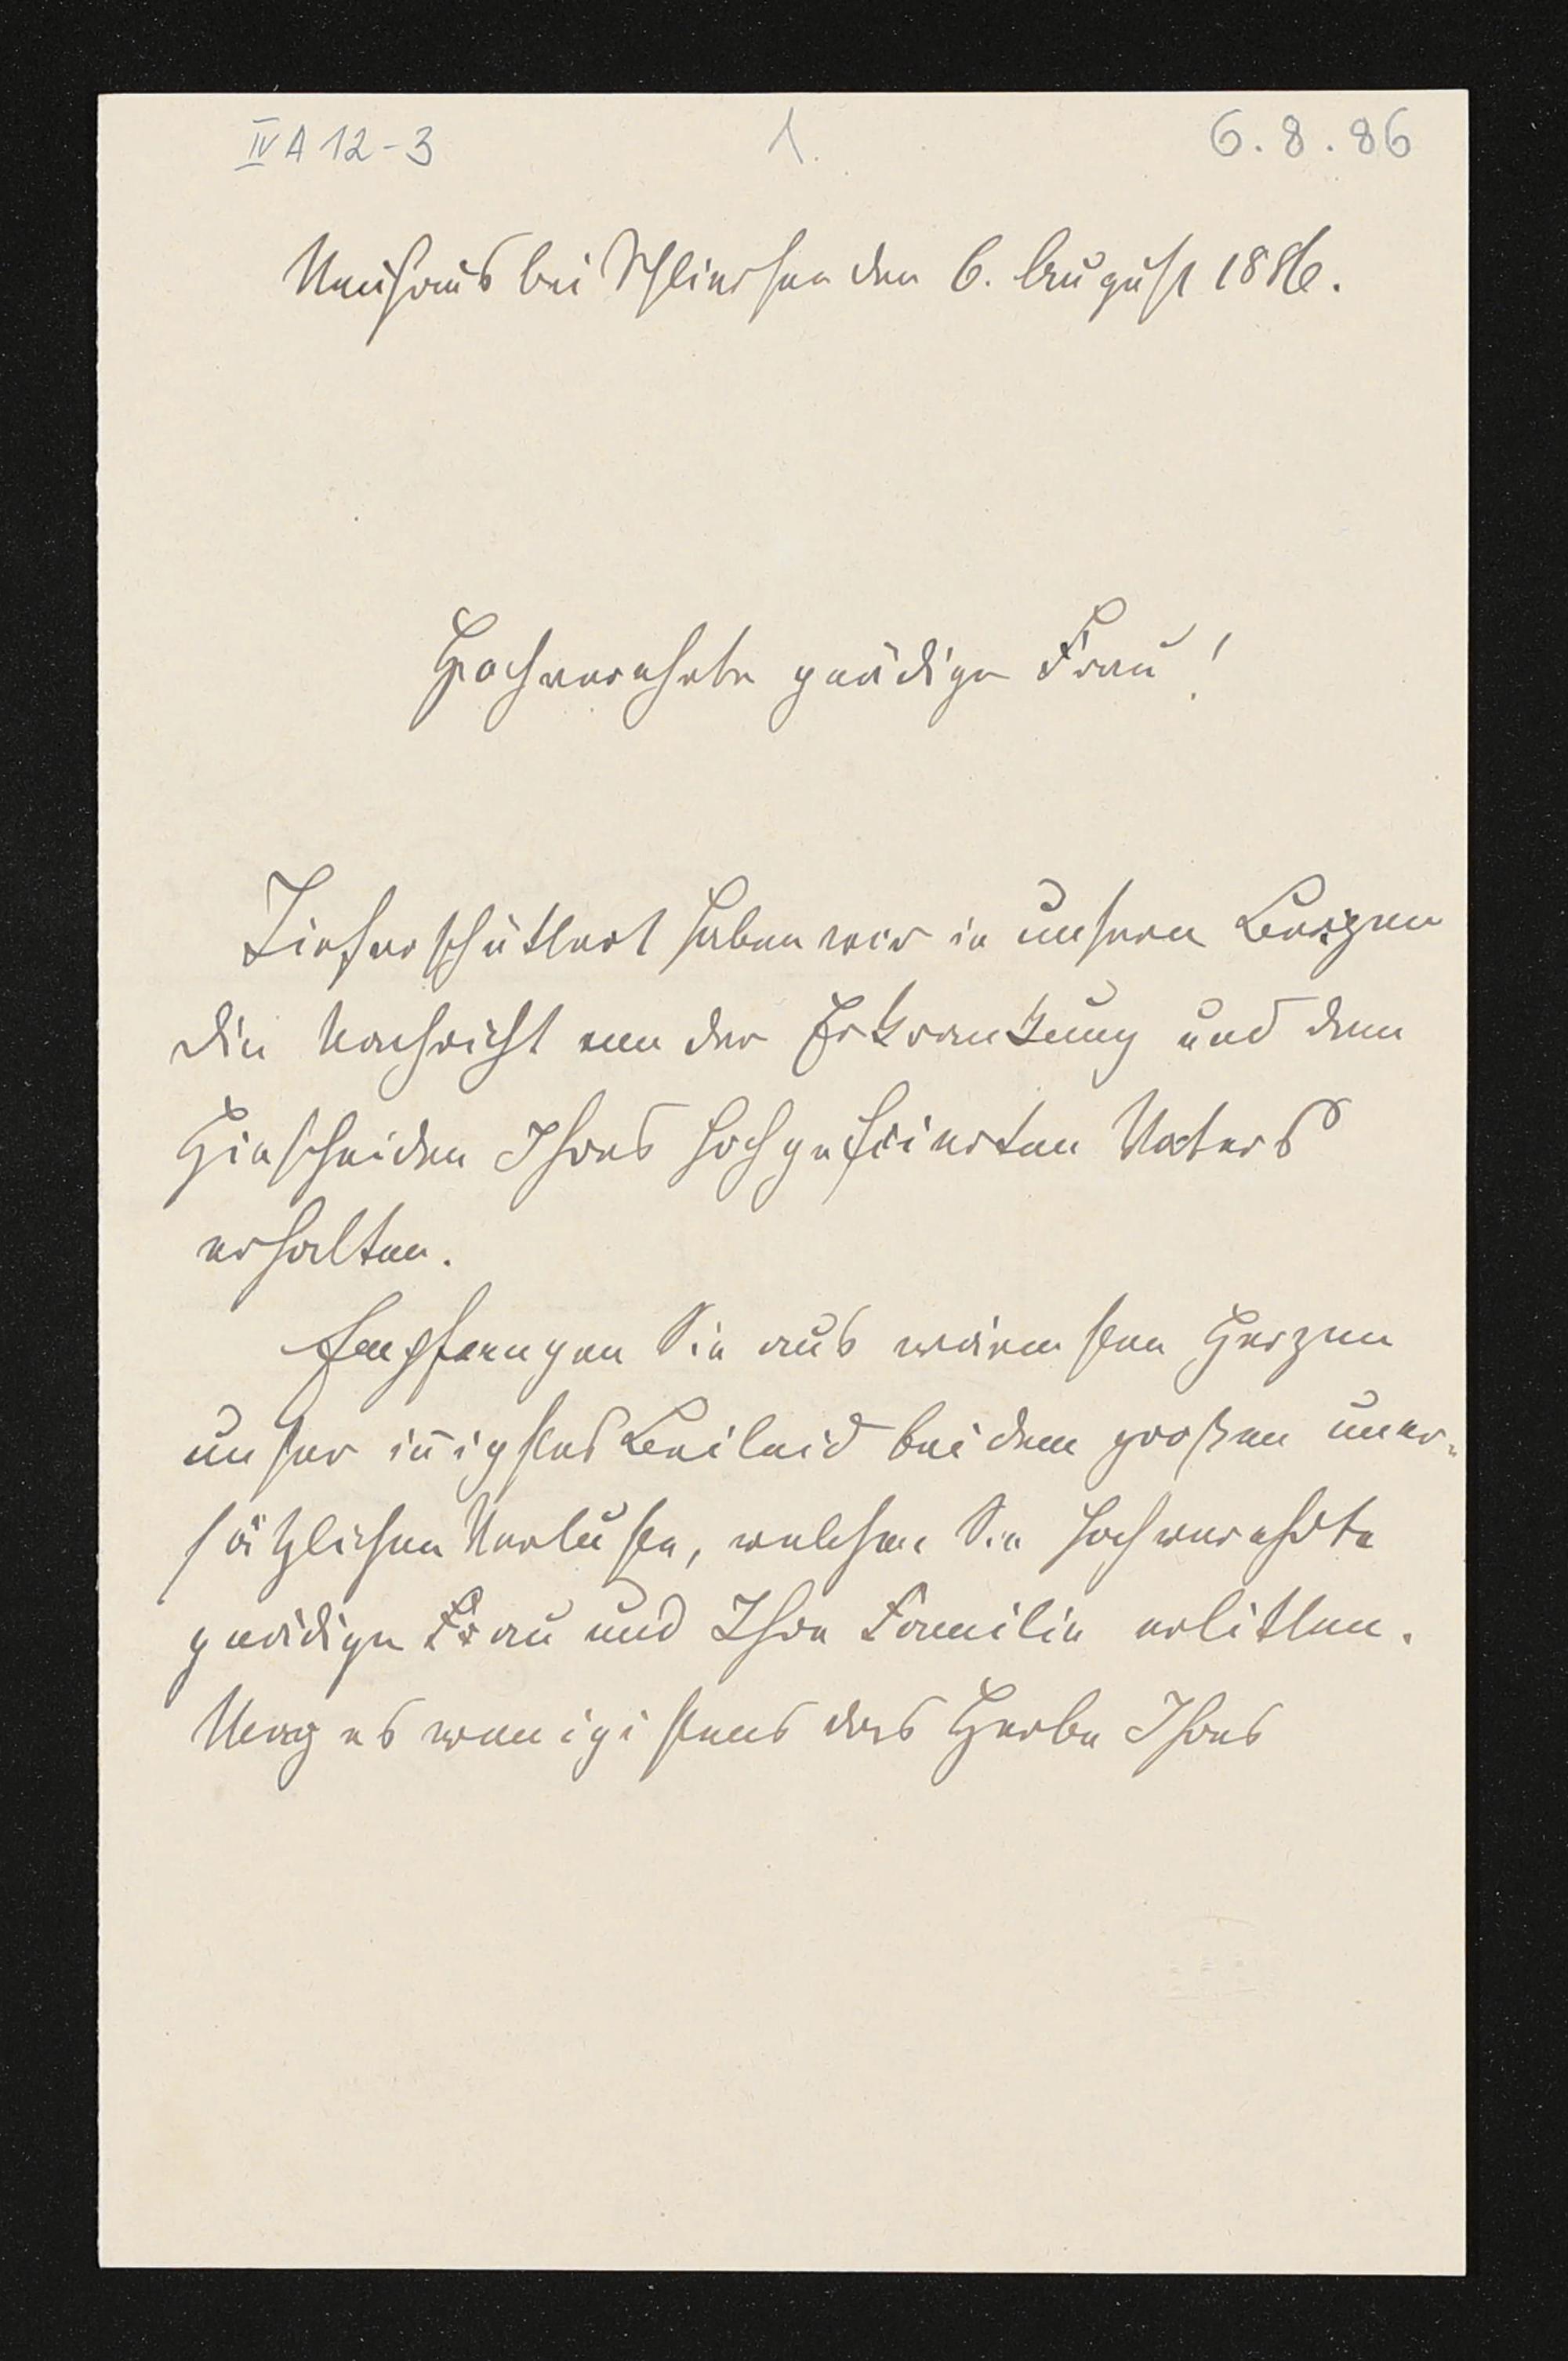 IV A 12-3
1.
6.8.86
Neuhaus bei Schliersee den 6. August 1886.
Hochverehrte gnädige Frau!
Tieferschüttert haben wir in unsern Bergen
die Nachricht von der Erkrankung und dem
Hinscheiden Ihres hochgefeierten Vaters
erhalten.
Empfangen Sie aus wärmsten Herzen
unser inigstes Beileid bei dem großen uner-
sätzlichen Verluste, welchen Sie hochverehrte
gnädige Frau und Ihre Familie erlitten.
Mag es wenigistens das Herbe Ihres